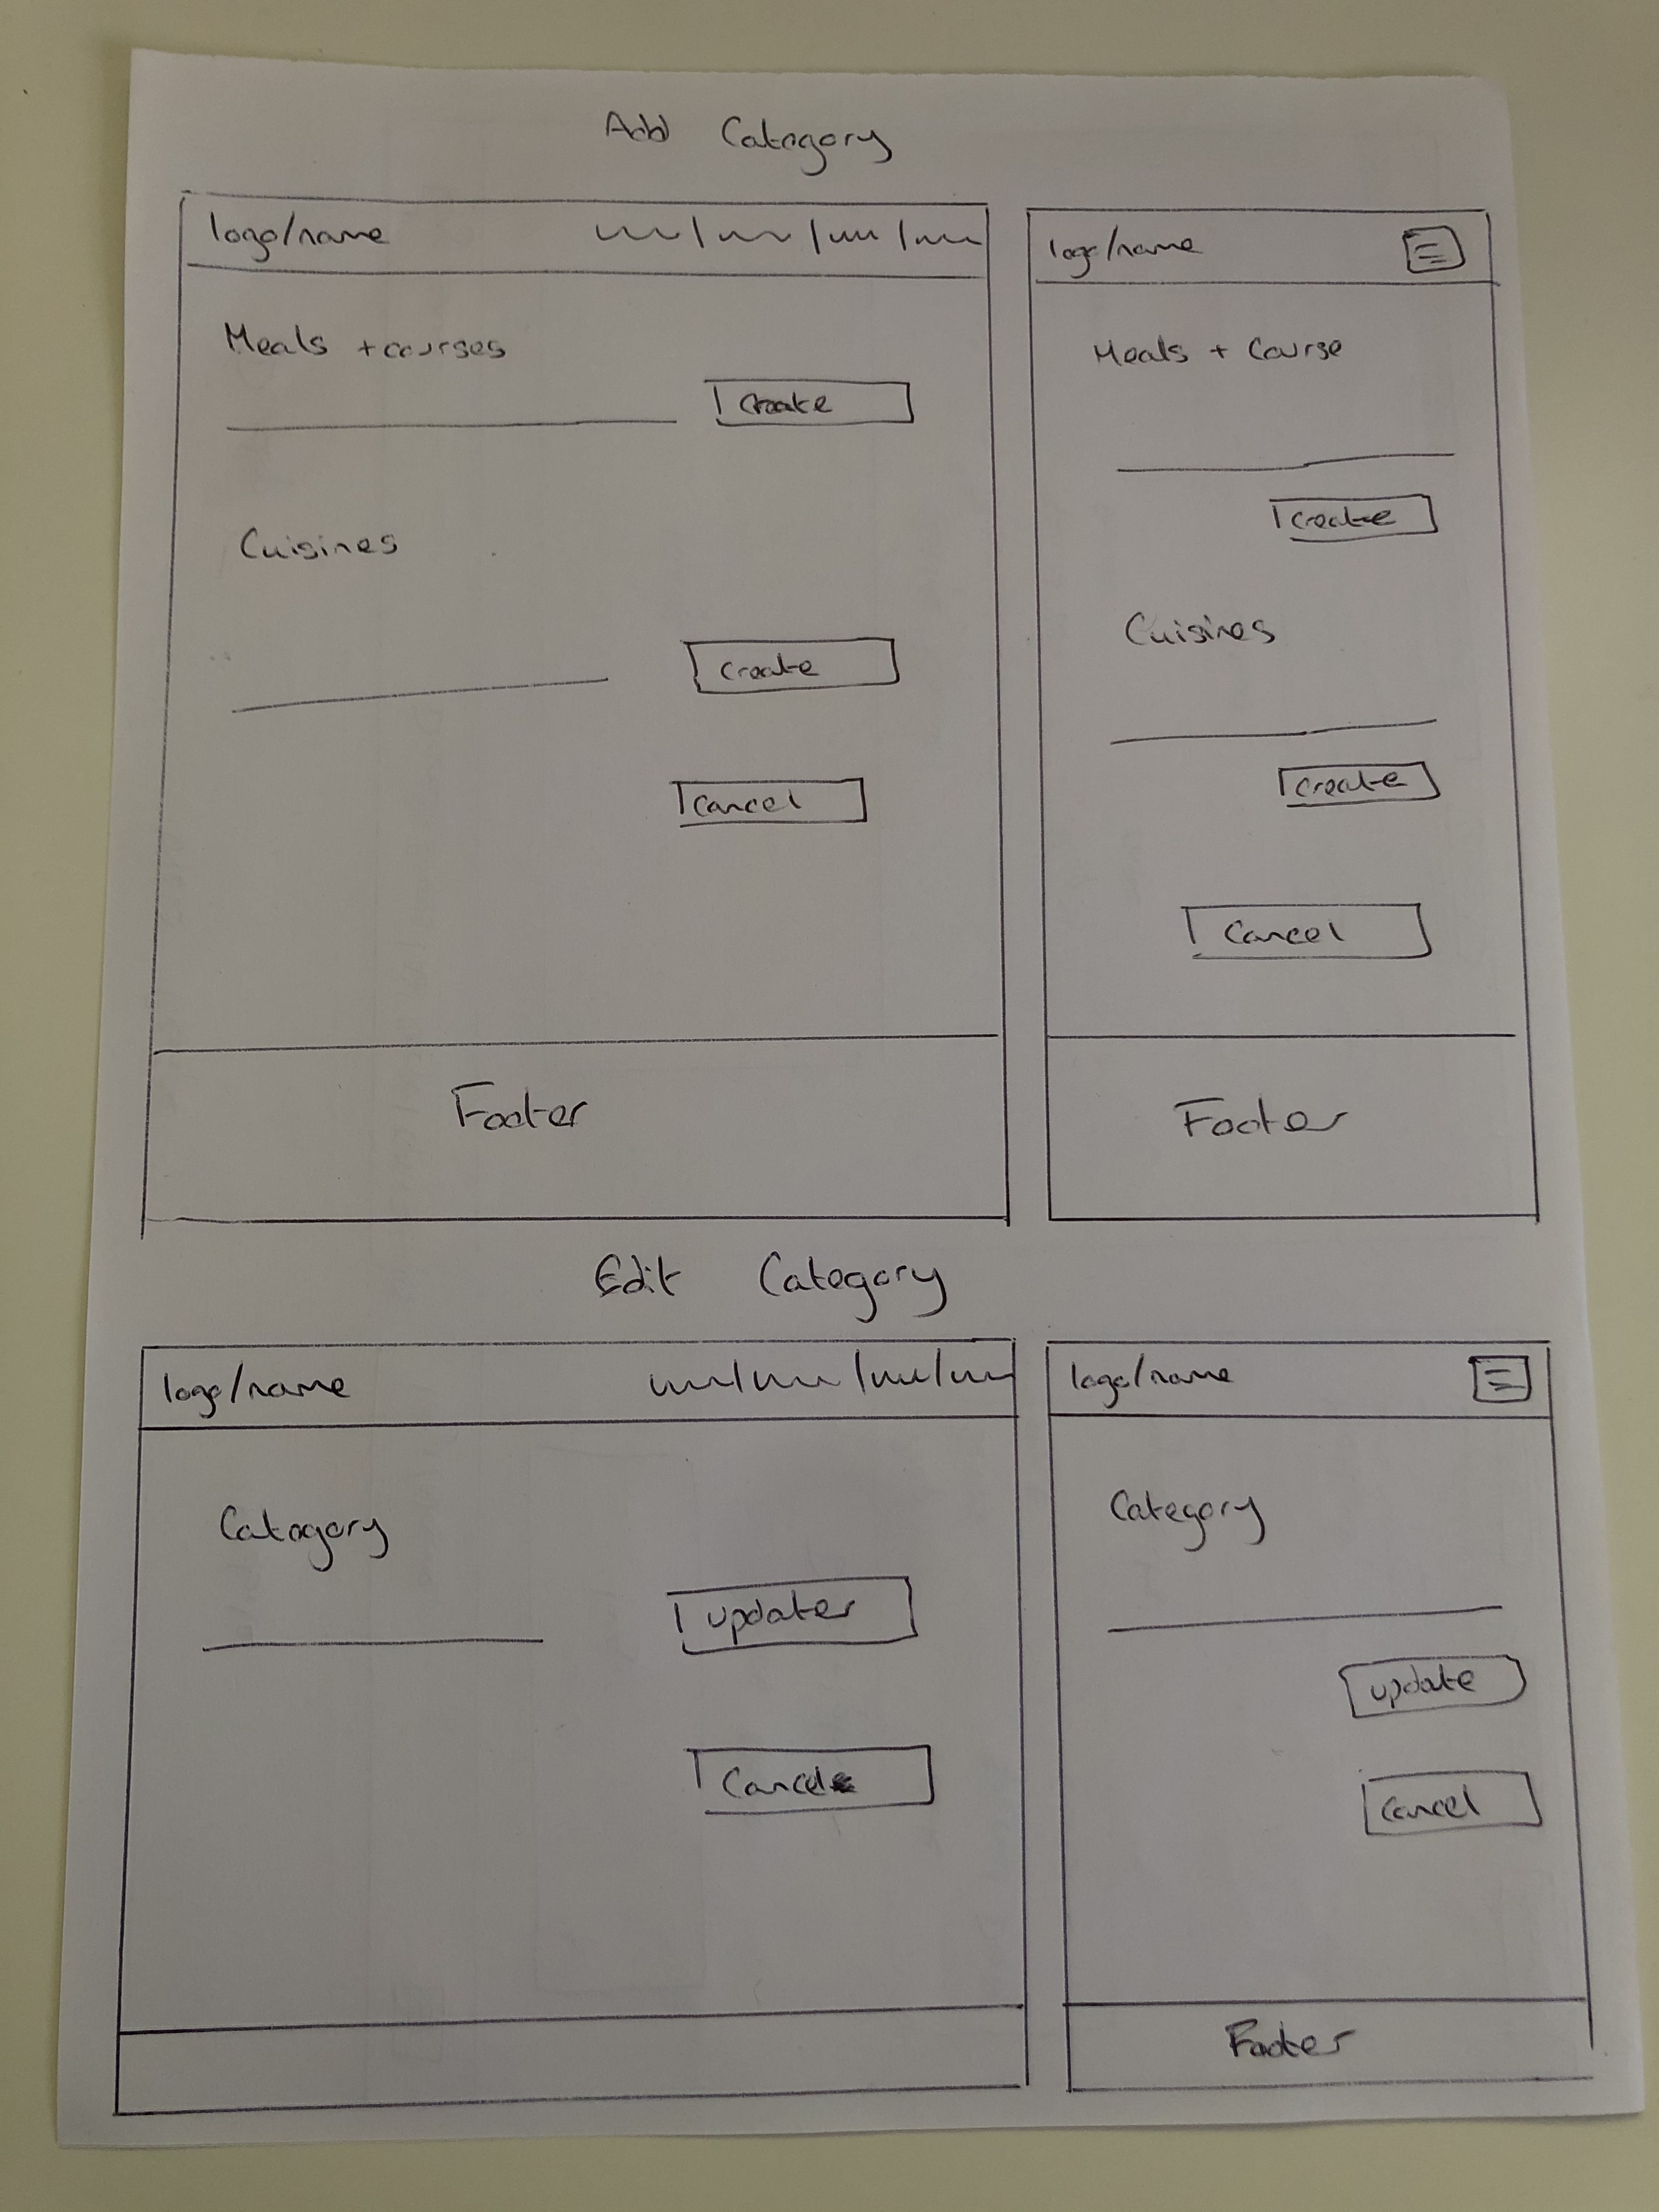 Add Category
logo/name
logo/name
Meals + courses
create
Cuisines
create
cancel
Footer
Meals + Course
create
Cuisines
create
Cancel
Footer
Edit Category
logo/name
logo/name
Category
update
Cancel
Category
update
cancel
Footer